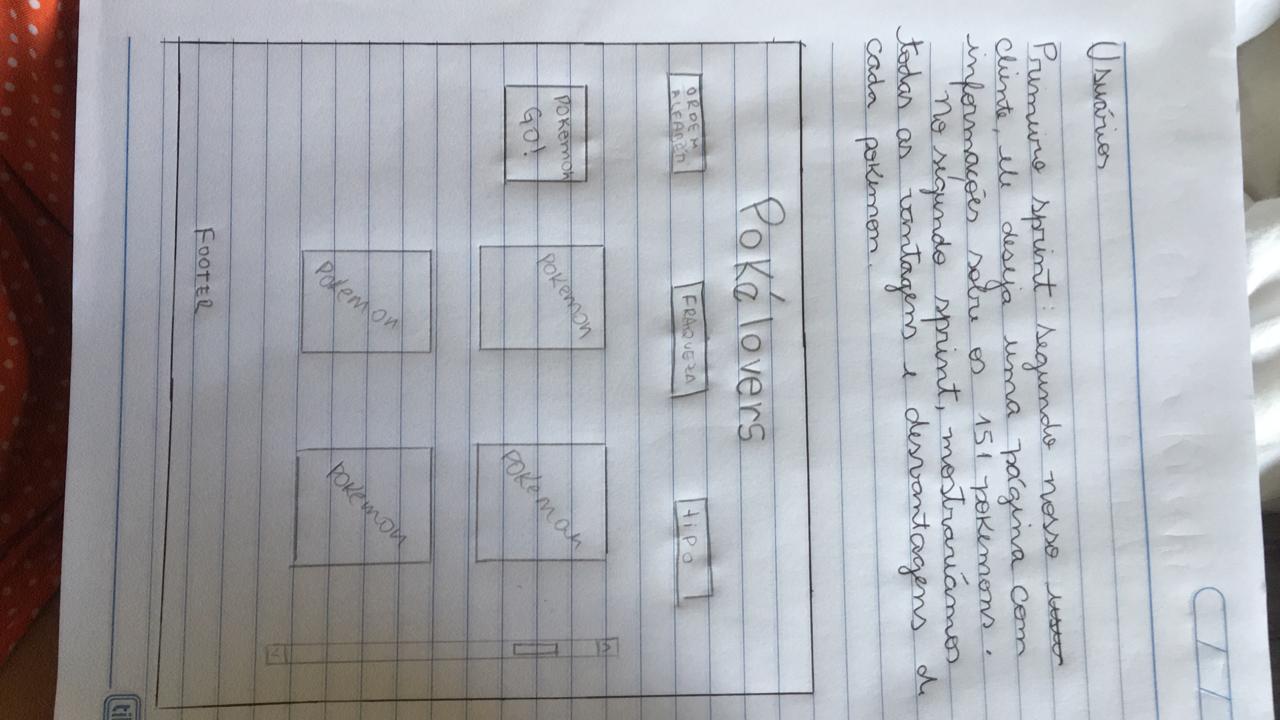 Usuários
Primeiro sprint: segundo nosso
cliente, ele deseja uma página com
informações sobre os 151 pokemons.
No segundo sprint, mostraríamos
todas as vantagens e desvantagens de
cada pokemon.
Pokálovers
ORDEM
ALFABÉT
FRAQUEZA
tipo
POKEMON
GO!
pokemon
POKEMON
POKEMON
POKEMON
FOOTER